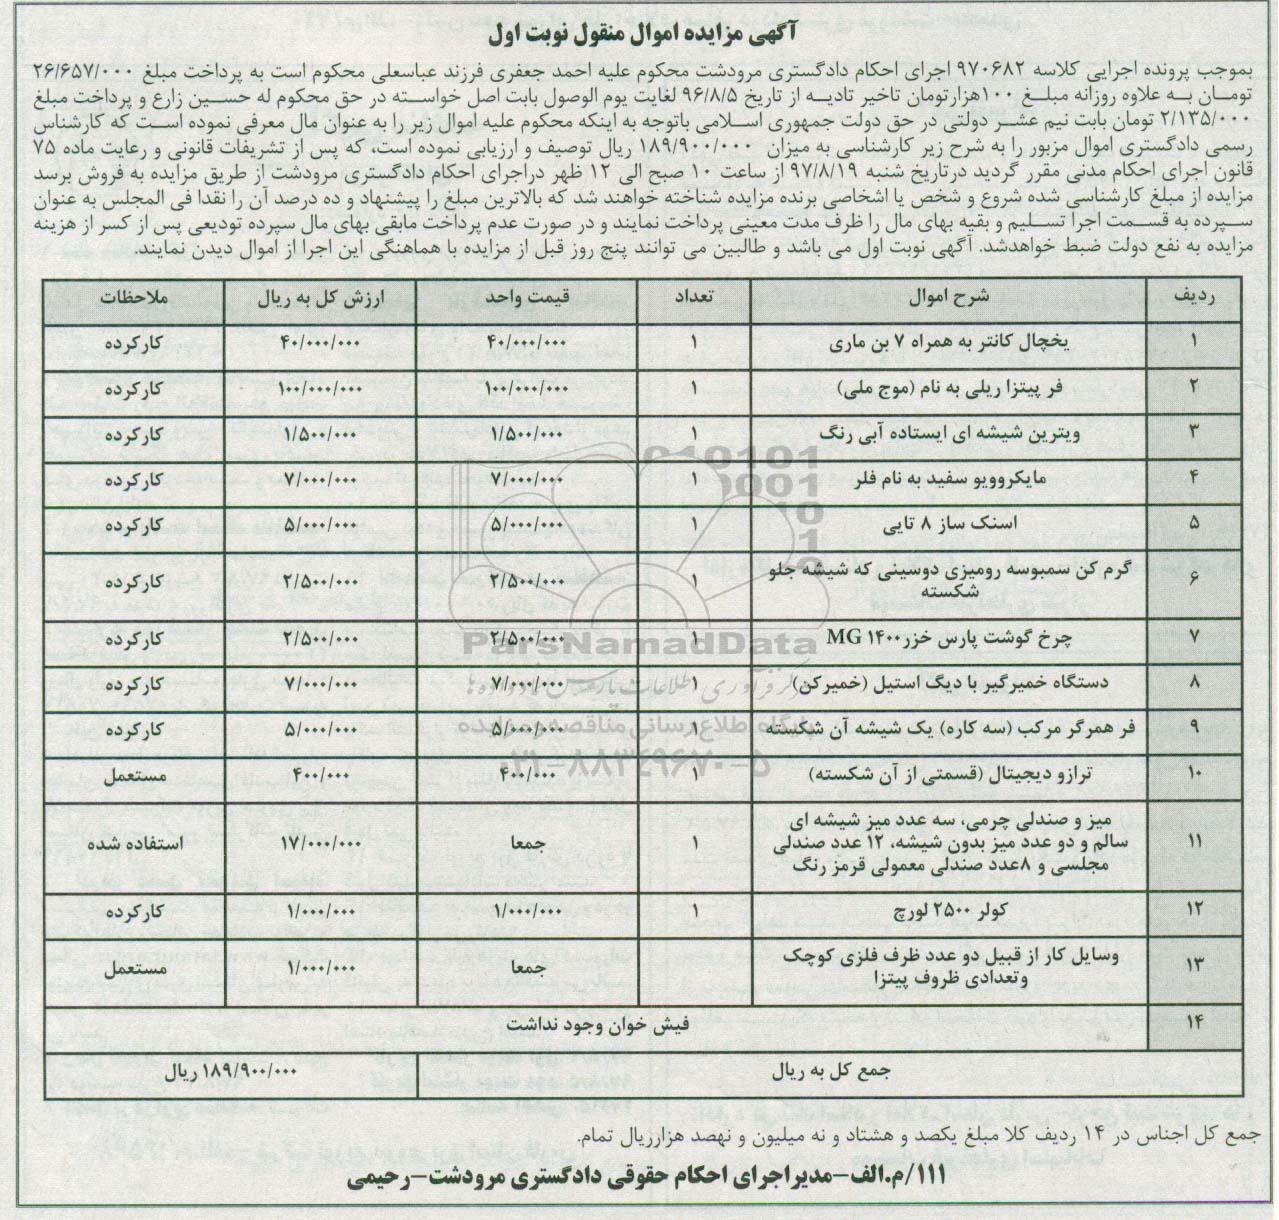 آگهی مزایده اموال منقول نوبت اول
بموجب پرونده اجرایی کلاسه ۹۷۰۶۸۲ اجرای احکام دادگستری مرودشت محکوم علیه احمد جعفری فرزند عباسعلی محکوم است به پرداخت مبلغ ۲۶/۶۵۷/۰۰۰
تومان به علاوه روزانه مبلغ ۱۰۰هزارتومان تاخیر تادیه از تاریخ ۹۶/۸/۵ لغایت یوم الوصول بابت اصل خواسته در حق محکوم له حسین زارع و پرداخت مبلغ
۲/۱۳۵/۰۰۰ تومان بابت نیم عشر دولتی در حق دولت جمهوری اسلامی باتوجه به اینکه محکوم علیه اموال زیر را به عنوان مال معرفی نموده است که کارشناس
رسمی دادگستری اموال مزبور را به شرح زیر کارشناسی به میزان ۱۸۹/۹۰۰/۰۰۰ ریال توصیف و ارزیابی نموده است، که پس از تشریفات قانونی و رعایت ماده ۷۵
قانون اجرای احکام مدنی مقرر گردید درتاریخ شنبه ۹۷/۸/۱۹ از ساعت ۱۰ صبح الی ۱۲ ظهر دراجرای احکام دادگستری مرودشت از طریق مزایده به فروش برسد
مزایده از مبلغ کارشناسی شده شروع و شخص یا اشخاصی برنده مزایده شناخته خواهند شد که بالاترین مبلغ را پیشنهاد و ده درصد آن را نقدا فی المجلس به عنوان
سپرده به قسمت اجرا تسلیم و بقیه بهای مال را ظرف مدت معینی پرداخت نمایند و در صورت عدم پرداخت مابقی بهای مال سپرده تودیعی پس از کسر از هزینه
مزایده به نفع دولت ضبط خواهدشد. آگهی نوبت اول می باشد و طالبین می توانند پنج روز قبل از مزایده با هماهنگی این اجرا از اموال دیدن نمایند.
ردیف شرح اموال تعداد قیمت واحد ارزش کل به ریال ملاحظات
۱ یخچال کانتر به همراه ۷ بن ماری ۱ ۴۰/۰۰۰/۰۰۰ ۴۰/۰۰۰/۰۰۰ کارکرده
۲ فر پیتزا ریلی به نام (موج ملی) ۱ ۱۰۰/۰۰۰/۰۰۰ ۱۰۰/۰۰۰/۰۰۰ کارکرده
۳ ویترین شیشه ای ایستاده آبی رنگ ۱ ۱/۵۰۰/۰۰۰ ۱/۵۰۰/۰۰۰ کارکرده
۴ مایکروویو سفید به نام فلر ۱ ۷/۰۰۰/۰۰۰ ۷/۰۰۰/۰۰۰ کارکرده
۵ اسنک ساز ۸ تایی ۱ ۵/۰۰۰/۰۰۰ ۵/۰۰۰/۰۰۰ کارکرده
۶ گرم کن سمبوسه رومیزی دوسینی که شیشه جلو
شکسته ۱ ۲/۵۰۰/۰۰۰ ۲/۵۰۰/۰۰۰ کارکرده
۷ چرخ گوشت پارس خزر۱۴۰۰ MG ۱ ۲/۵۰۰/۰۰۰ ۲/۵۰۰/۰۰۰ کارکرده
۸ دستگاه خمیرگیر با دیگ استیل (خمیرکن) ۱ ۷/۰۰۰/۰۰۰ ۷/۰۰۰/۰۰۰ کارکرده
۹ فر همرگر مرکب (سه کاره) یک شیشه آن شکسته ۱ ۵/۰۰۰/۰۰۰ ۵/۰۰۰/۰۰۰ کارکرده
۱۰ ترازو دیجیتال (قسمتی از آن شکسته) ۱ ۴۰۰/۰۰۰ ۴۰۰/۰۰۰ مستعمل
۱۱ میز و صندلی چرمی، سه عدد میز شیشه ای
سالم و دو عدد میز بدون شیشه، ۱۲ عدد صندلی
مجلسی و ۸عدد صندلی معمولی قرمز رنگ ۱ جمعا ۱۷/۰۰۰/۰۰۰ استفاده شده
۱۲ کولر ۲۵۰۰ لورچ ۱ ۱/۰۰۰/۰۰۰ ۱/۰۰۰/۰۰۰ کارکرده
۱۳ وسایل کار از قبیل دو عدد ظرف فلزی کوچک
وتعدادی ظروف پیتزا جمعا ۱/۰۰۰/۰۰۰ مستعمل
۱۴ فیش خوان وجود نداشت
جمع کل به ریال ۱۸۹/۹۰۰/۰۰۰ ریال
جمع کل اجناس در ۱۴ ردیف کلا مبلغ یکصد و هشتاد و نه میلیون و نهصد هزارریال تمام.
۱۱۱/م.الف-مدیراجرای احکام حقوقی دادگستری مرودشت-رحیمی
ParsNamadData
پایگاه اطلاع رسانی مناقصه و مزایده
۰۲۱-۸۸۳۴۹۶۷۰-۵